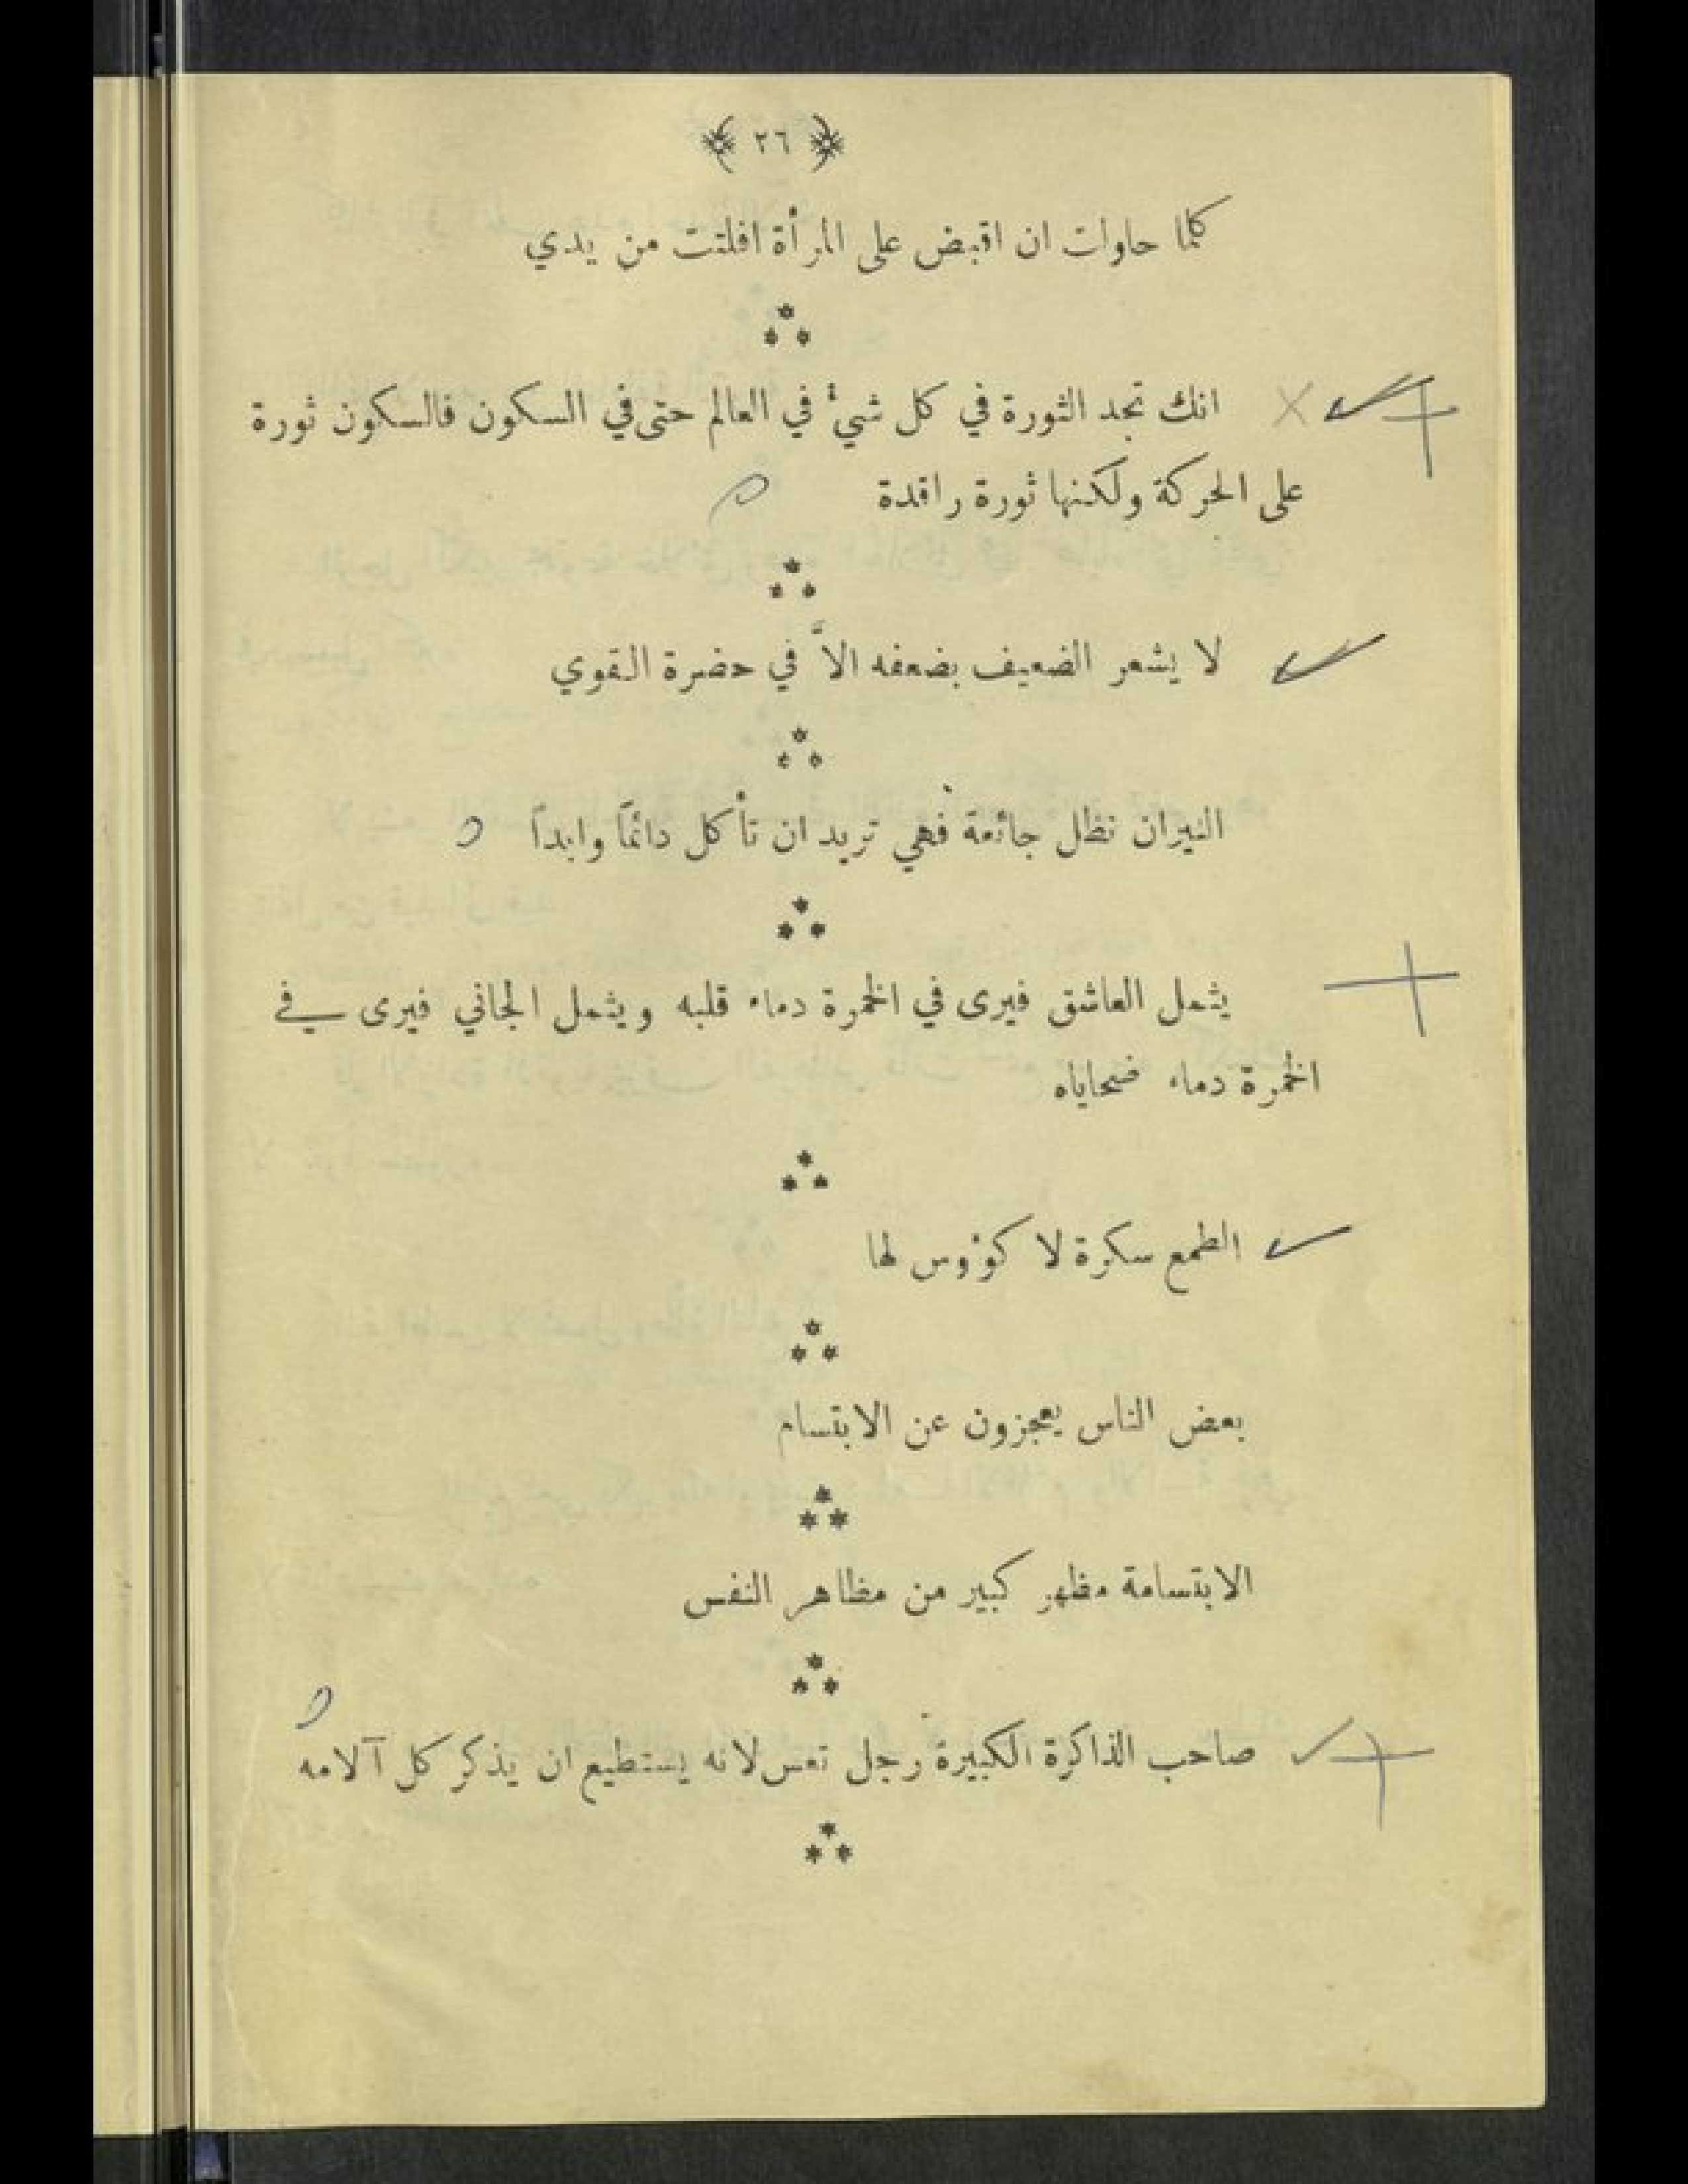 ٢٦
كلما حاولت ان اقبض على المرأة افلتت من يدي
انك تجد الثورة في كل شيءٍ في العالم حتى في السكون فالسكون ثورة
على الحركة ولكنها ثورة راقدة
لا يشعر الضعيف بضعفه الاَّ في حضرة القوي
النيران تظل جائعة فهي تريد ان تأكل دائمًا وابدًا
يثمل العاشق فيرى في الخمرة دماء قلبه ويثمل الجاني فيرى في
الخمرة دماء ضحاياه
الطمع سكرة لا كؤوس لها
بعض الناس يعجزون عن الابتسام
الابتسامة مظهر كبير من مظاهر النفس
صاحب الذاكرة الكبيرة رجل تعس لانه يستطيع ان يذكر كل آلامه